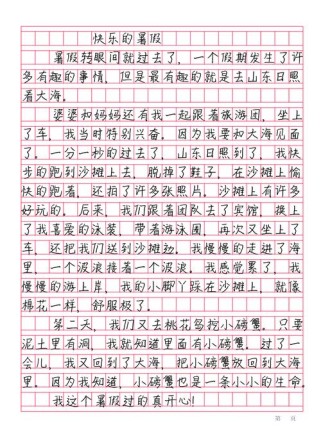 快乐的暑假
暑假转眼间就过去了，一个假期发生了许
多有趣的事情，但是最有趣的就是去山东日照
看大海。
婆婆和妈妈还有我一起跟着旅游团，坐上
了车，我当时特别兴奋。因为我要和大海见面
了。一分一秒的过去了，山东日照到了，我快
步的跑到沙摊上去，脱掉了鞋子，在沙摊上愉
快的跑着，还拍了许多张照片。沙摊上有许多
好玩的。后来，我们跟着团队去了宾馆，换上
了我喜爱的泳装，带着游泳圈，再次又坐上了
车，还把我们送到沙摊边。我慢慢的走进了海
里，一个波浪接着一个波浪。我感觉累了，我
慢慢的游上岸，我的小脚丫踩在沙摊上，就像
棉花一样，舒服极了。
第二天，我们又去桃花岛挖小磅蟹。只要
泥土里有洞，我就知道里面有小磅蟹。过了一
会儿，我又回到了大海，把小磅蟹放回到大海
里。因为我知道，小磅蟹也是一条小小的生命。
我这个暑假过的真开心!
第 页